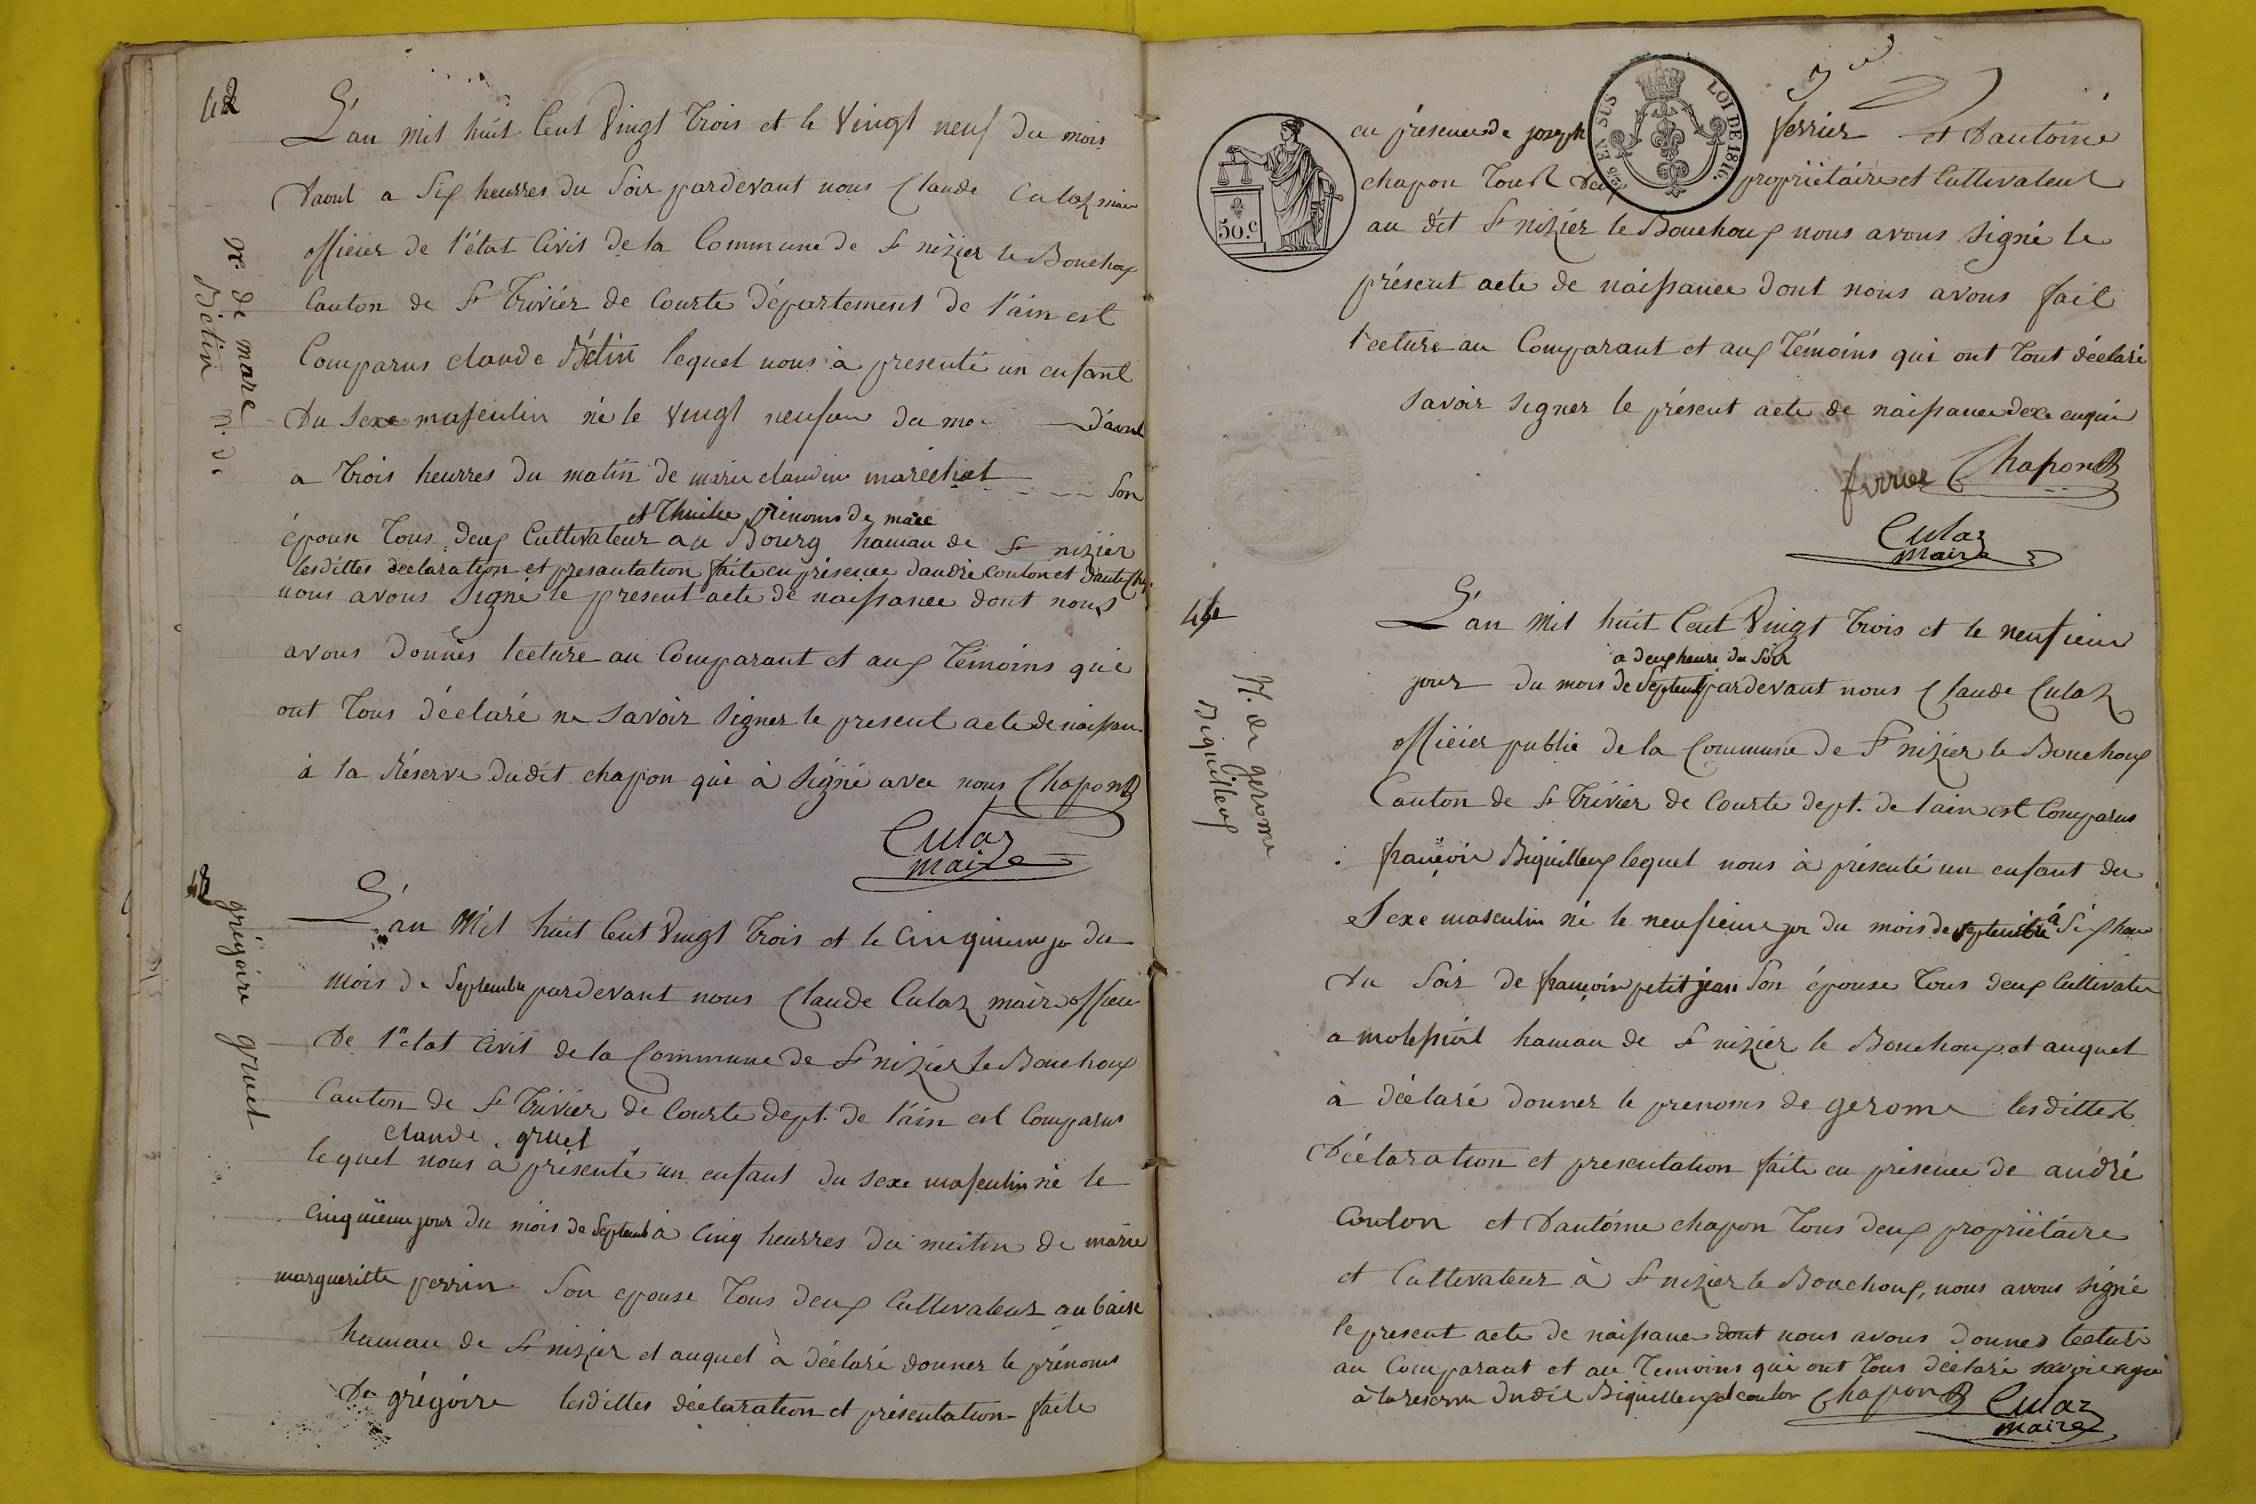 42
L'an mil huit Cent Vingt Trois et le Vingt neuf du mois
Daout a Six heurres du Soir pardevant nous Claude Culaz maire
officier de l'état Civil de la Commune de St nizier le Bouchoux
Canton de St Trivier de Courte Département de l'ain est
Comparus claude Bétin lequel nous à presenté un enfant
Du Sexe masculin né le Vingt neufieu du mo d'aout
a Trois heurres du matin de marie claudine maréchal Son
épouse Tous deux Cultivateur au Bourg hamau de St nizier
et prenoms de marc
lesdittes déclaration et presantation faite en présence dandré coulon et
nous avons Signé le present acte de naissance dont nous
avons Donnés lecture au Comparant et aux Temoins qui
ont Tous déclaré ne Savoir Signer le present acte de naissan
à la Réserve Dudit chapon qui à Signé avec nous Chapon
Culaz
maire
N. de marc
Bétin
43
grégoire gruel
L'an Mil huit Cent Vingt Trois et le Cinquieme jo du
mois de Septembre pardevant nous Claude Culaz maire officier
De l'état Civil de la Commune de St nizier le Bouchoux
Canton de St Trivier de Courte dept. de l'ain est Comparus
claude gruel
lequel nous à présenté un enfant du sexe masculin né le
Cinquième jour du mois de Septemb à Cinq heurres du matin de marie
margueritte perrin Son epouse Tous deux Cultivateur au baise
hamau de St nizier et auquel à déclaré donner le prénoms
De grégoire lesdittes déclaration et présentation faite
en présence de joseph ferrier et Dantoine
chapon Tous Deux propriétaire et Cultivateur
au dit St nizier le Bouchoux nous avons signé le
présent acte de naissance dont nous avons fait
lecture au Comparant et aux Témoins qui ont Tout déclaré
Savoir Signer le présent acte de naissance de ce enquis
EN SUS
LOI DE 1816.
50.c
ferrier Chapon
Culaz
maire
44
N. de gerome
Biquilleux
L'an Mil huit Cent Vingt Trois et le neufieme
a deux heure du Soir
jour du mois de Septemb pardevant nous Claude Culaz
officier public de la Commune de St nizier le Bouchoux
Canton de St Trivier de Courte dept. de l'ain est Comparus
françois Biquilleux lequel nous à présenté un enfant du
Sexe masculin né le neufieme jor du mois de septembre à Six heur
du Soir de françoise petit jean Son épouse Tous deux Cultivateur
a molessiat hamau de St nizier le Bouchoux et auquel
à déclaré donner le prenoms de gerome lesdittes
Déclaration et presentation faite en présence de andré
Coulon et Dantoine chapon Tous deux propriétaire
et Cultivateur à St nizier le Bouchoux, nous avons signé
le present acte de naissance dont nous avons donnés lecture
au Comparant et au Temoins qui ont Tous déclaré savoir signé
à la reserve Dudit Biquilleux et coulon Chapon Culaz
maire